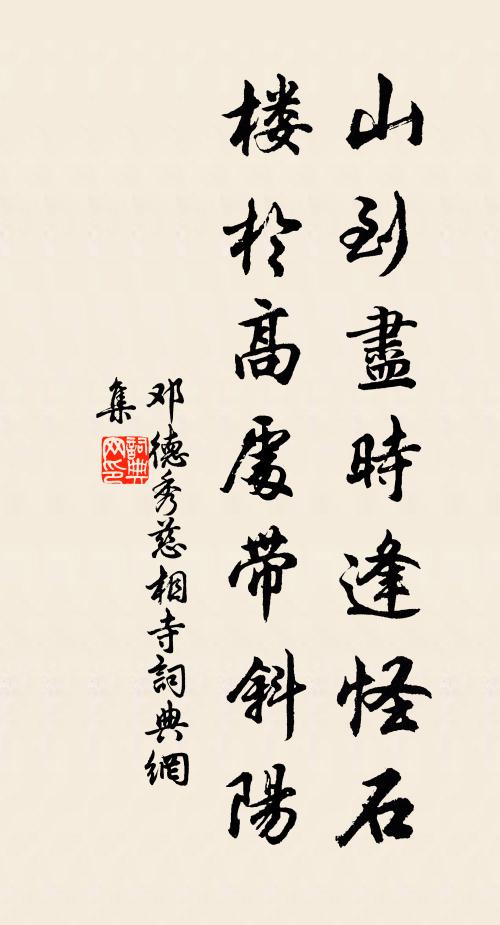 山到盡時逢怪石
楼於高處带斜陽
邓德秀慈相寺詞典網
集
詞典網印